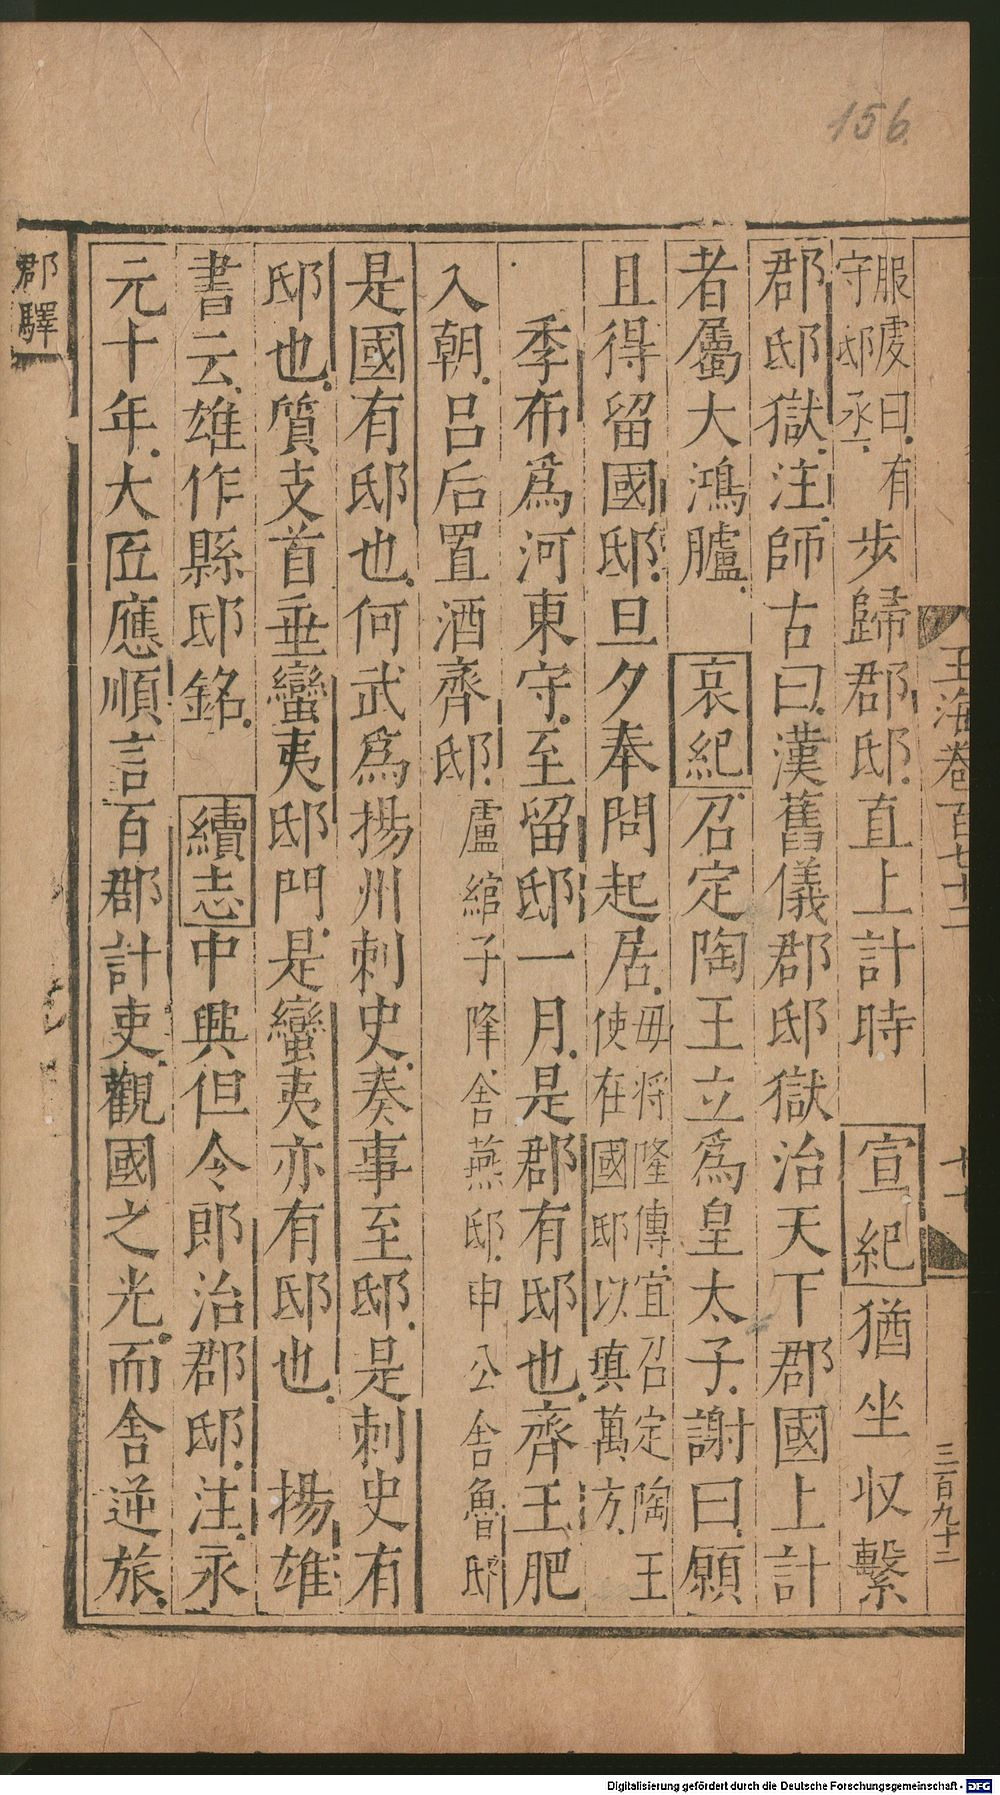 156.
玉海卷百七十二
三百九十二
服虔曰有守邸丞步歸郡邸直上計時 宣紀猶坐收繫
郡邸獄注師古曰漢舊儀郡邸獄治天下郡國上計
者屬大鴻臚 哀紀召定陶王立爲皇太子謝曰願
且得留國邸旦夕奉問起居毋將隆傳宜召定陶王使在國邸以塡萬方
季布爲河東守至留邸一月是郡有邸也齊王肥
入朝呂后置酒齊邸盧綰子降舍燕邸申公舍魯邸
是國有邸也何武爲揚州刺史奏事至邸是刺史有
邸也質支首垂蠻夷邸門是蠻夷亦有邸也 揚雄
書云雄作縣邸銘 續志中興但令郎治郡邸注永
元十年大匠應順言百郡計吏觀國之光而舍逆旅
郡驛
Digitalisierung gefördert durch die Deutsche Forschungsgemeinschaft - DFG